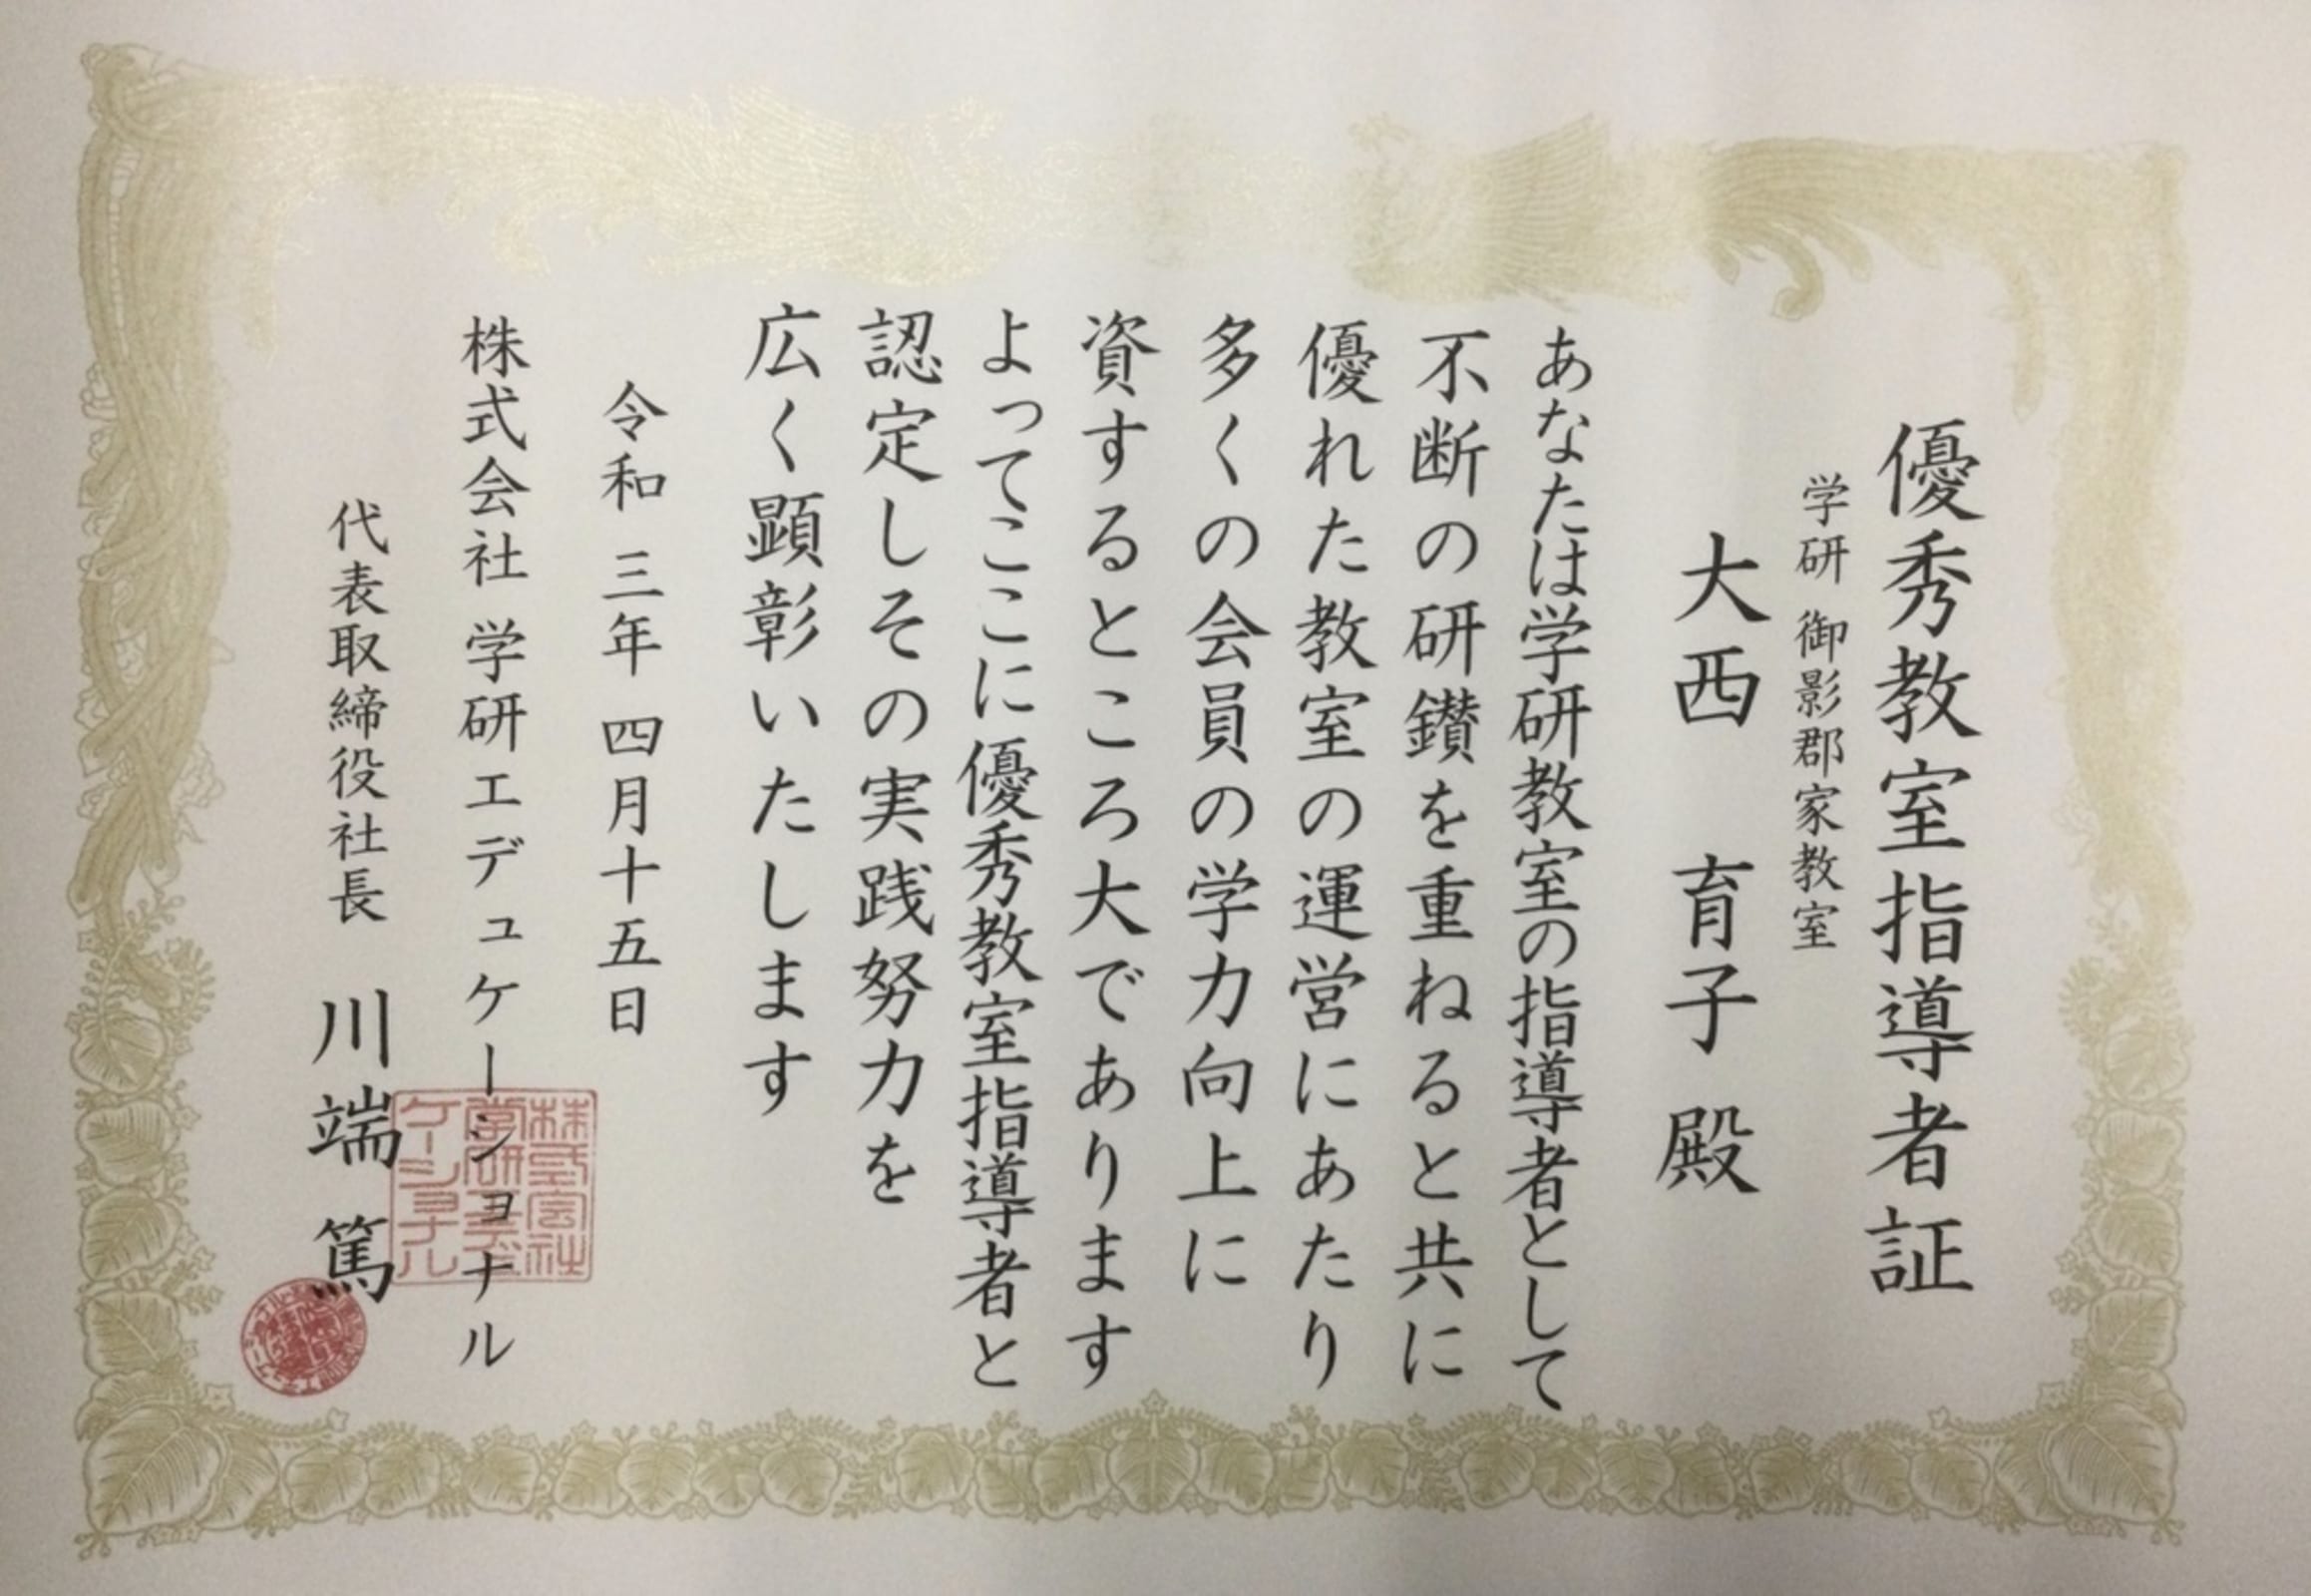 優秀教室指導者証
学研 御影郡家教室
大西 育子 殿
あなたは学研教室の指導者として
不断の研鑽を重ねると共に
優れた教室の運営にあたり
多くの会員の学力向上に
資するところ大であります
よってここに優秀教室指導者と
認定しその実践努力を
広く顕彰いたします
令和 三年 四月十五日
株式会社 学研エデュケーショナル
代表取締役社長 川端 篤
株式会社
学研エデュ
ケーショナル